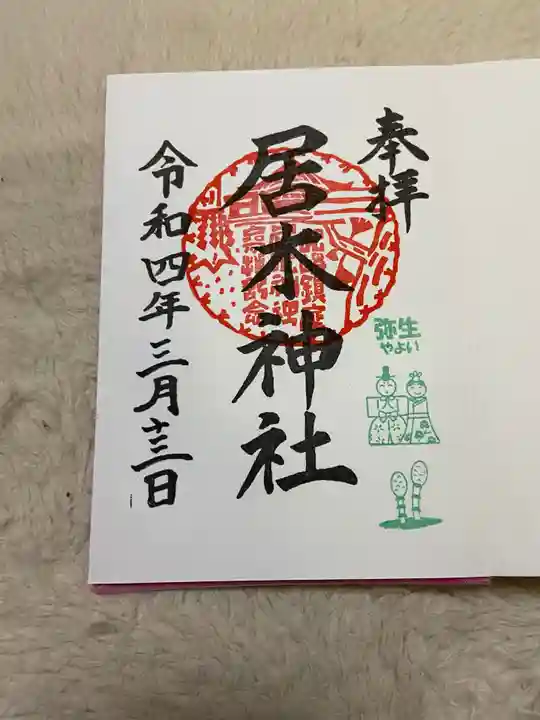 奉拝
弥生
やよい
居木神社
令和四年三月十三日